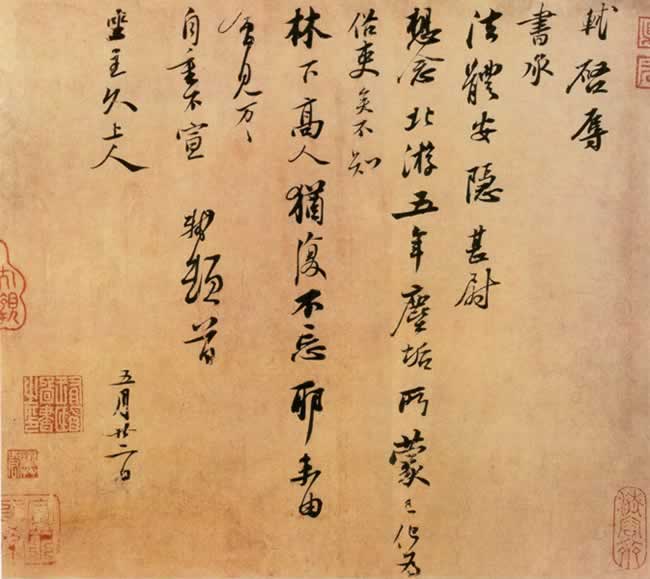 軾啓辱
書承
法體安隱甚尉
想念北游五年塵垢所蒙已化為
俗吏矣不知
林下高人猶復不忘耶未由
會見萬萬
自重不宣　軾頓首
坐主久上人
五月廿二日